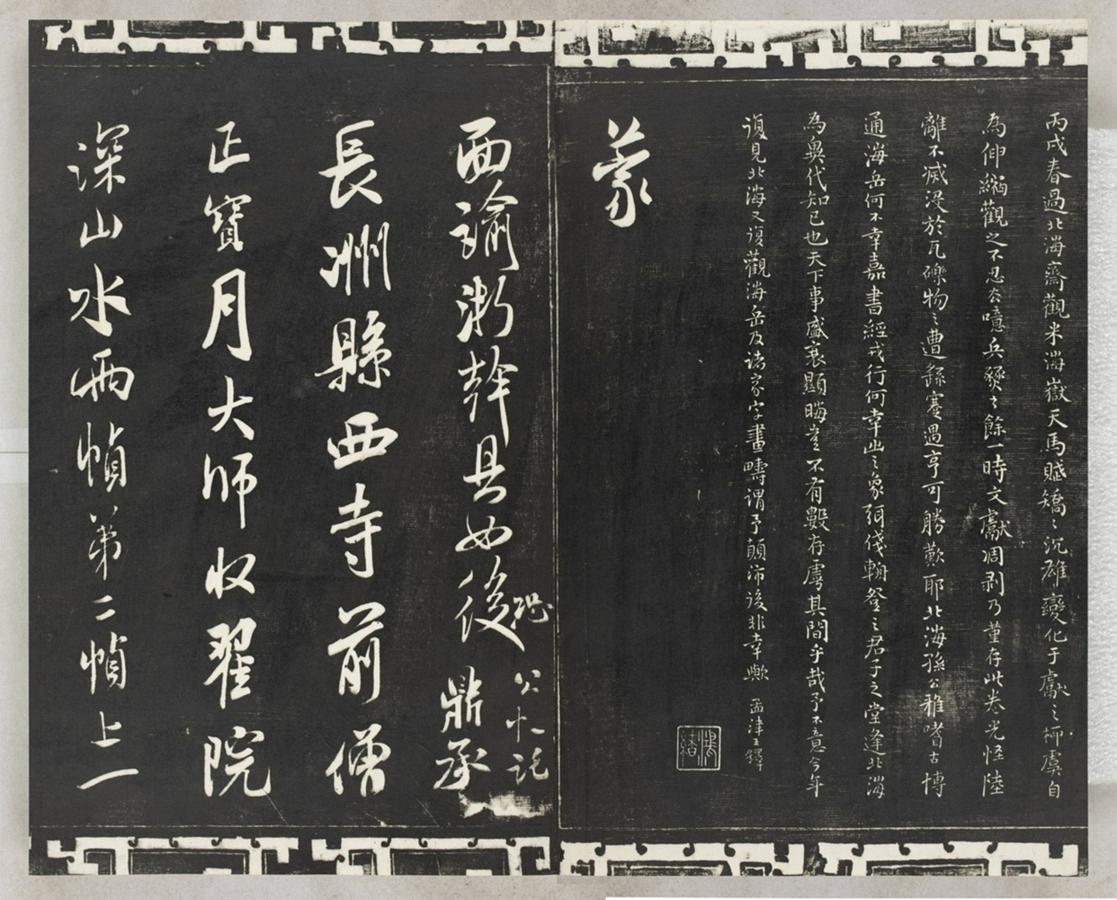 丙戌春過北海齋觀米海嶽天馬賦矯〻沉雄變化于獻之柳虞自
為伸縮觀之不忍去噫兵燹之餘一時文獻凋剥乃蓳存此卷光怪陸
離不滅没於瓦礫物之遭錄蹇遇亨可勝歎耶北海孫公雅嗜古博
通海岳何不幸嘉書經戎行何幸此之象弭伐翰登之君子之堂逢北海
為異代知己也天下事盛衰顯晦豈不有數存虖其間乎哉予不意今年
復見北海又復觀海岳及諸家字畫疇謂予顛沛後非幸歟 西津王鐸
蒙
面諭淅幹具如後
恐公忙託
鼎承
長洲縣西寺前僧
正寶月大師收翟院
深山水兩幀第二幀上一